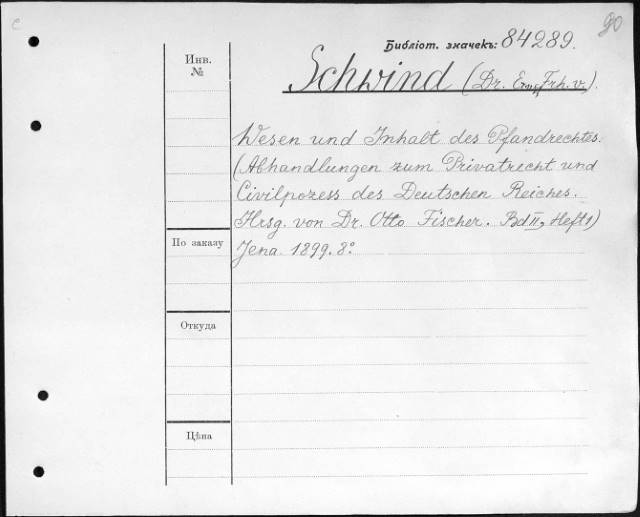 c
90
Библіот. значекъ: 84289.
Инв.
№
Schwind (Dr. Ernst Frh. v.).
Wesen und Inhalt des Pfandrechtes.
(Abhandlungen zum Privatrecht und
Civilpozess des Deutschen Reiches.
Hrsg. von Dr. Otto Fischer. Bd II, Heft 1)
По заказу
Jena. 1899. 8°
Откуда
Цѣна